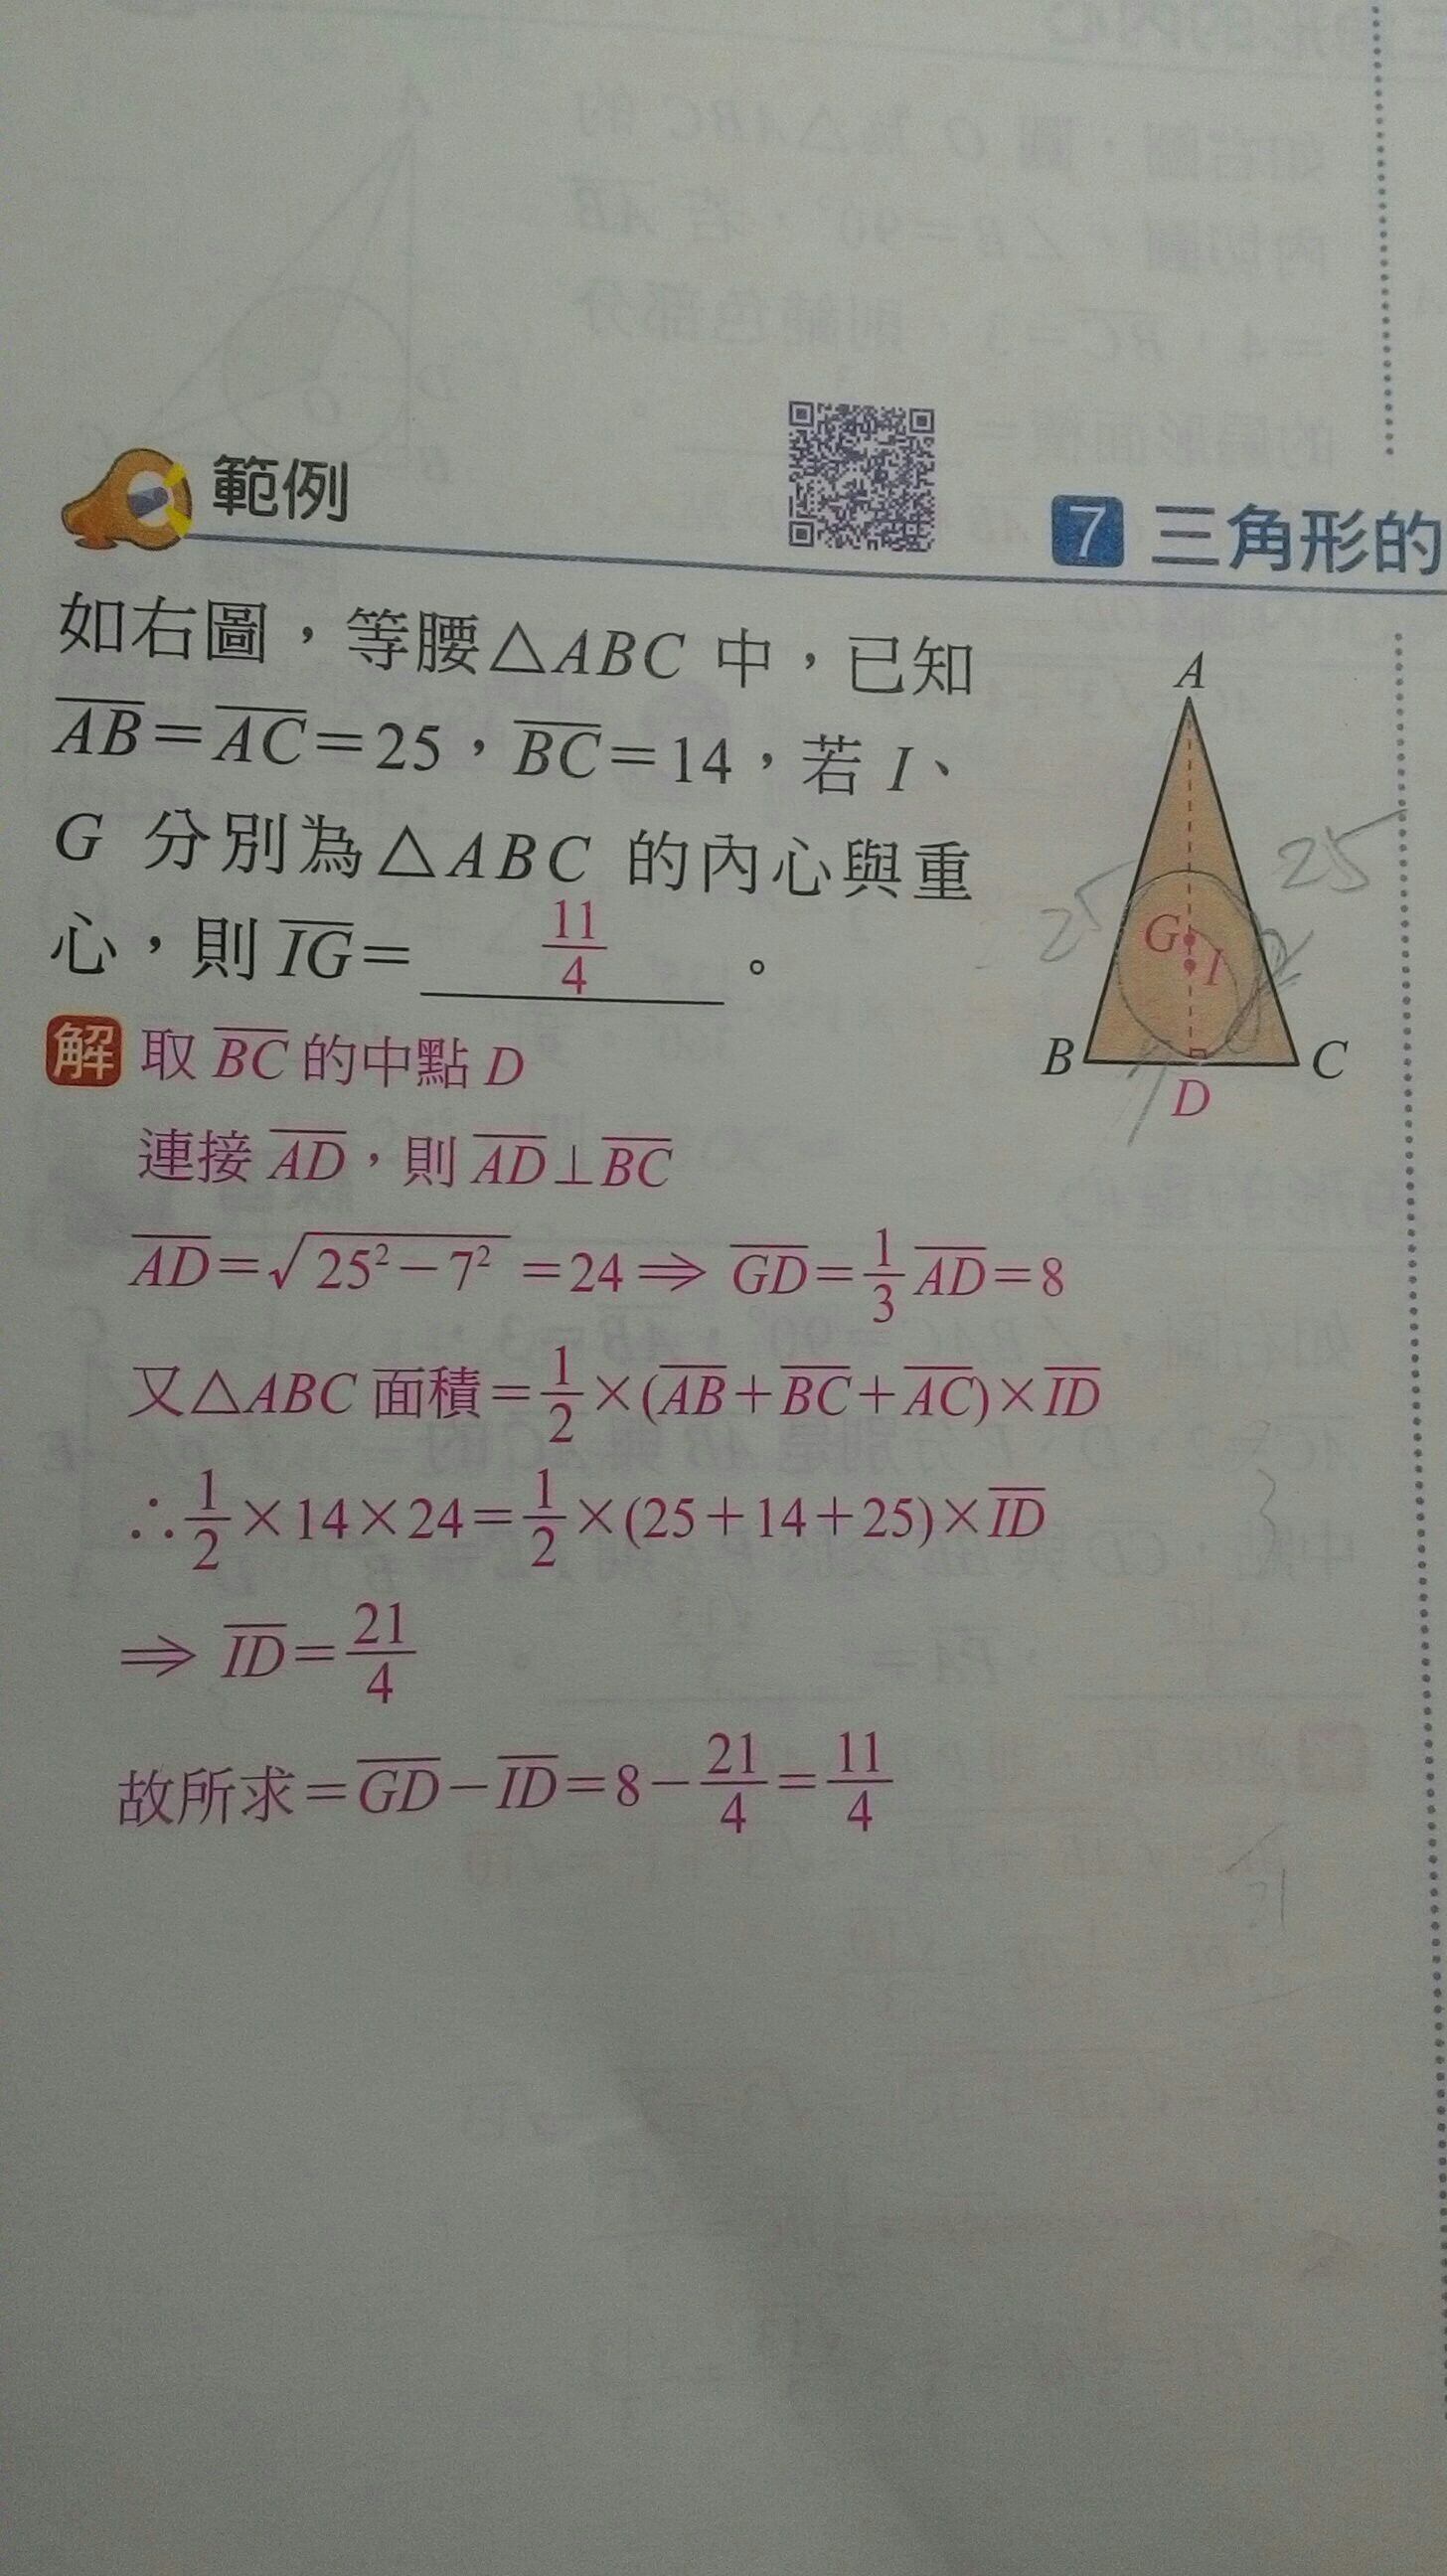 範例
7 三角形的
如右圖，等腰△ABC 中，已知
AB＝AC＝25，BC＝14，若 I、
G 分別為△ABC 的內心與重
心，則 IG＝ 11/4 。
A
25
25
G
I
B
C
7
D
解 取 BC 的中點 D
連接 AD，則 AD⊥BC
AD＝√(25²－7²)＝24⇒ GD＝1/3 AD＝8
又△ABC 面積＝1/2×(AB＋BC＋AC)×ID
∴1/2×14×24＝1/2×(25＋14＋25)×ID
⇒ ID＝21/4
故所求＝GD－ID＝8－21/4＝11/4